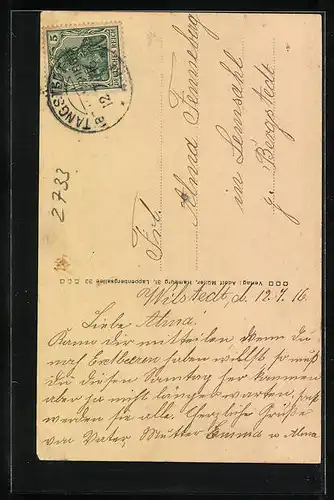 5
DEUTSCHES REICH
TANGSTEDT
Frl.
Alma Timmelbag
in Lemsahl
p. Bergstedt
2733
Verlag: Adolf Müller, Hamburg 31, Lappenbergsallee 20
Wilstedt, d. 12.7.16.
Liebe Alma!
Kann dir mitteilen wenn du
noch Erdbeeren haben willst so muß
du diesen Samstag her kommen
aber ja nicht länger warten, sonst
werden sie alle. Herzliche Grüße
von Vater, Mutter Emma u Alma